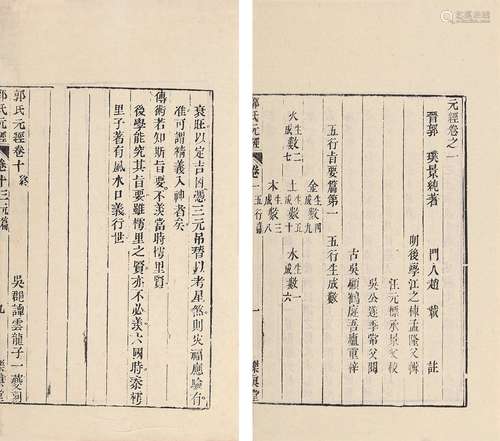 元經卷之一
晉郭 璞景純著 門人趙 載 註
明後學江之棟孟隆父輯
汪元標承景父校
吳公遴季常父閱
古吳顧鶴庭吾廬重梓
五行旨要篇第一 五行生成數
金生數四成數九
水生數一成數六
土生數五成數十
木生數三成數八
火生數二成數七
郭氏元經 卷一 五行篇 一
衰旺以定吉凶憑三元吊替以考星煞則災福應驗有
准可謂精義入神者矣
傳術若知斯旨要不羨當時樗里賢
後學能究其旨要雖樗里之賢亦不必羨六國時秦樗
里子著有風水口義行世
郭氏元經卷十終
吳郡諱雲龍子一夔
郭氏元經 卷十 三元篇 九